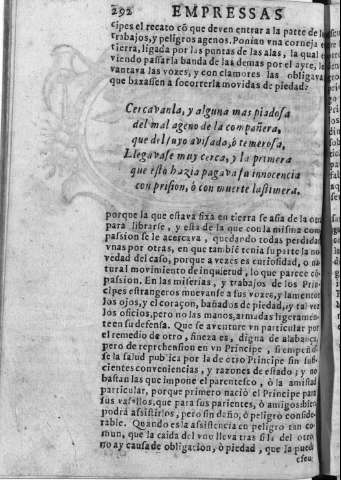 292 EMPRESSAS
cipes el recato cõ que deven entrar a la parte de los
trabajos, y peligros agenos. Ponian vna corneja en
tierra, ligada por las puntas de las alas, la qual
viendo passar la banda de las demas por el ayre, le-
vantava las vozes, y con clamores las obligava
que baxassen a socorrerla movidas de piedad?
Cercavanla, y alguna mas piadosa
del mal ageno de la compañera,
que del suyo avisada, ò temerosa,
Llegavase muy cerca, y la primera
que esto hazia pagava su innocencia
con prision, ò con muerte lastimera.
porque la que estava fixa en tierra se asia de la otra
para librarse, y esta de la que con la misma com-
passion se le acercava, quedando todas perdidas
vnas por otras, en que tambiẽ tenia su parte la no-
vedad del caso, porque a vezes es curiosidad, o na-
tural movimiento de inquietud, lo que parece cõ-
passion. En las miserias, y trabajos de los Prin-
cipes estrangeros muevanse a sus vozes, y lamentos
los ojos, y el coraçon, bañados de piedad, y tal vez
los oficios, pero no las manos, armadas ligeramen-
te en su defensa. Que se aventure vn particular por
el remedio de otro, fineza es, digna de alabança,
pero de reprehension en vn Principe, si empeñase
la salud publica por la de otro Principe sin sufi-
cientes conveniencias, y razones de estado; y no
bastan las que impone el parentesco, ò la amistad
particular, porque primero naciò el Principe para
sus vasallos, que para sus parientes, ò amigos: bien
podrà assistirlos, pero sin daño, ò peligro conside-
rable. Quando es la assistencia en peligro tan co-
mun, que la caida del vno lleva tras si la del otro,
no ay causa de obligacion, ò piedad, que la pueda
escu